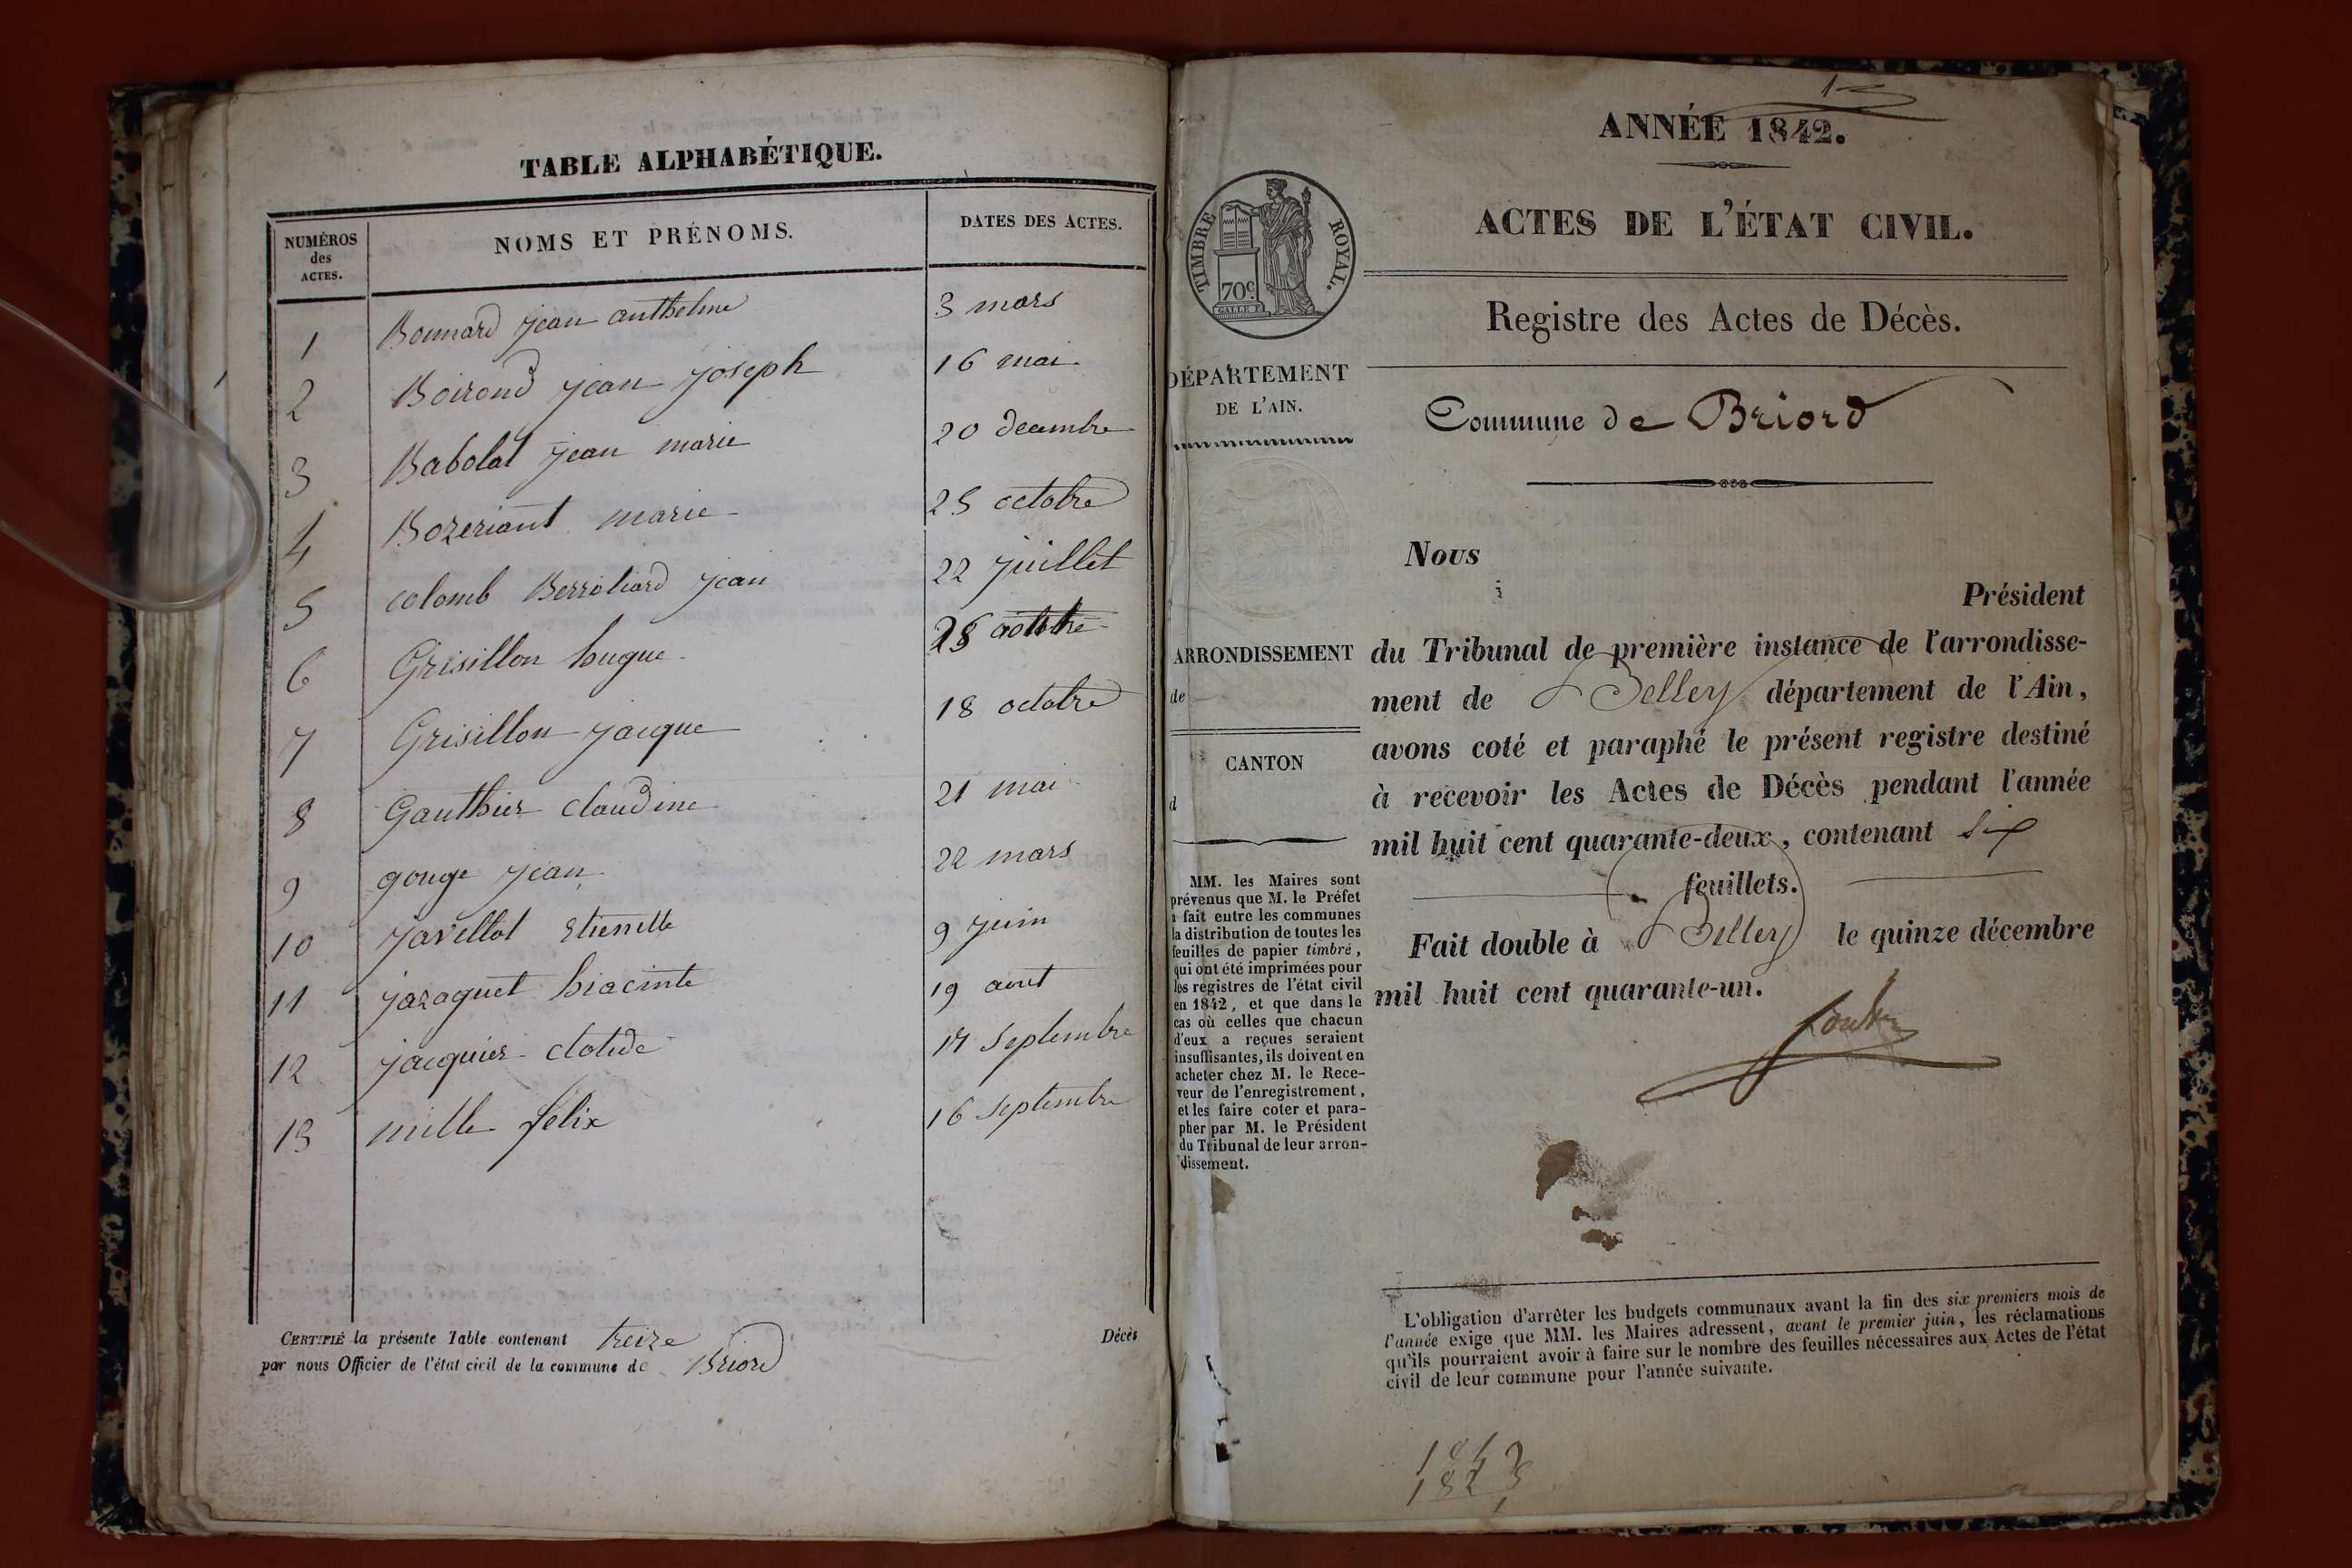 TABLE ALPHABÉTIQUE.
NUMÉROS des ACTES. NOMS ET PRÉNOMS. DATES DES ACTES.
1 Bonnard jean anthelme 3 mars
2 Boirond jean joseph 16 mai
3 Babolat jean marie 20 decembre
4 Bozeriant marie 25 octobre
5 colomb Berroliard jean 22 juillet
6 Grisillon hugue
7 Grisillon jacque 18 octobre
8 Gauthier claudine 21 mai
9 gouge jean 22 mars
10 javellot Etiennette 9 juin
11 jazaguet hiacinte 19 aout
12 jacquier clotide 17 Septembre
13 mille felix 16 septembre
CERTIFIÉ la présente Table contenant treize
par nous Officier de l'état civil de la commune de Briord
Décès
ANNÉE 1842.
ACTES DE L'ÉTAT CIVIL.
Registre des Actes de Décès.
TIMBRE ROYAL.
70c
DÉPARTEMENT
DE L'AIN.
Commune de Briord
Nous
Président
du Tribunal de première instance de l'arrondisse-
ment de Belley département de l'Ain,
avons coté et paraphé le présent registre destiné
à recevoir les Actes de Décès pendant l'année
mil huit cent quarante-deux, contenant six
feuillets.
Fait double à Belley le quinze décembre
mil huit cent quarante-un.
ARRONDISSEMENT
de
CANTON
d
MM. les Maires sont
prévenus que M. le Préfet
a fait entre les communes
la distribution de toutes les
feuilles de papier timbré,
qui ont été imprimées pour
les registres de l'état civil
en 1842, et que dans le
cas où celles que chacun
d'eux a reçues seraient
insuffisantes, ils doivent en
acheter chez M. le Rece-
veur de l'enregistrement,
et les faire coter et para-
pher par M. le Président
du Tribunal de leur arron-
dissement.
L'obligation d'arrêter les budgets communaux avant la fin des six premiers mois de
l'année exige que MM. les Maires adressent, avant le premier juin, les réclamations
qu'ils pourraient avoir à faire sur le nombre des feuilles nécessaires aux Actes de l'état
civil de leur commune pour l'année suivante.